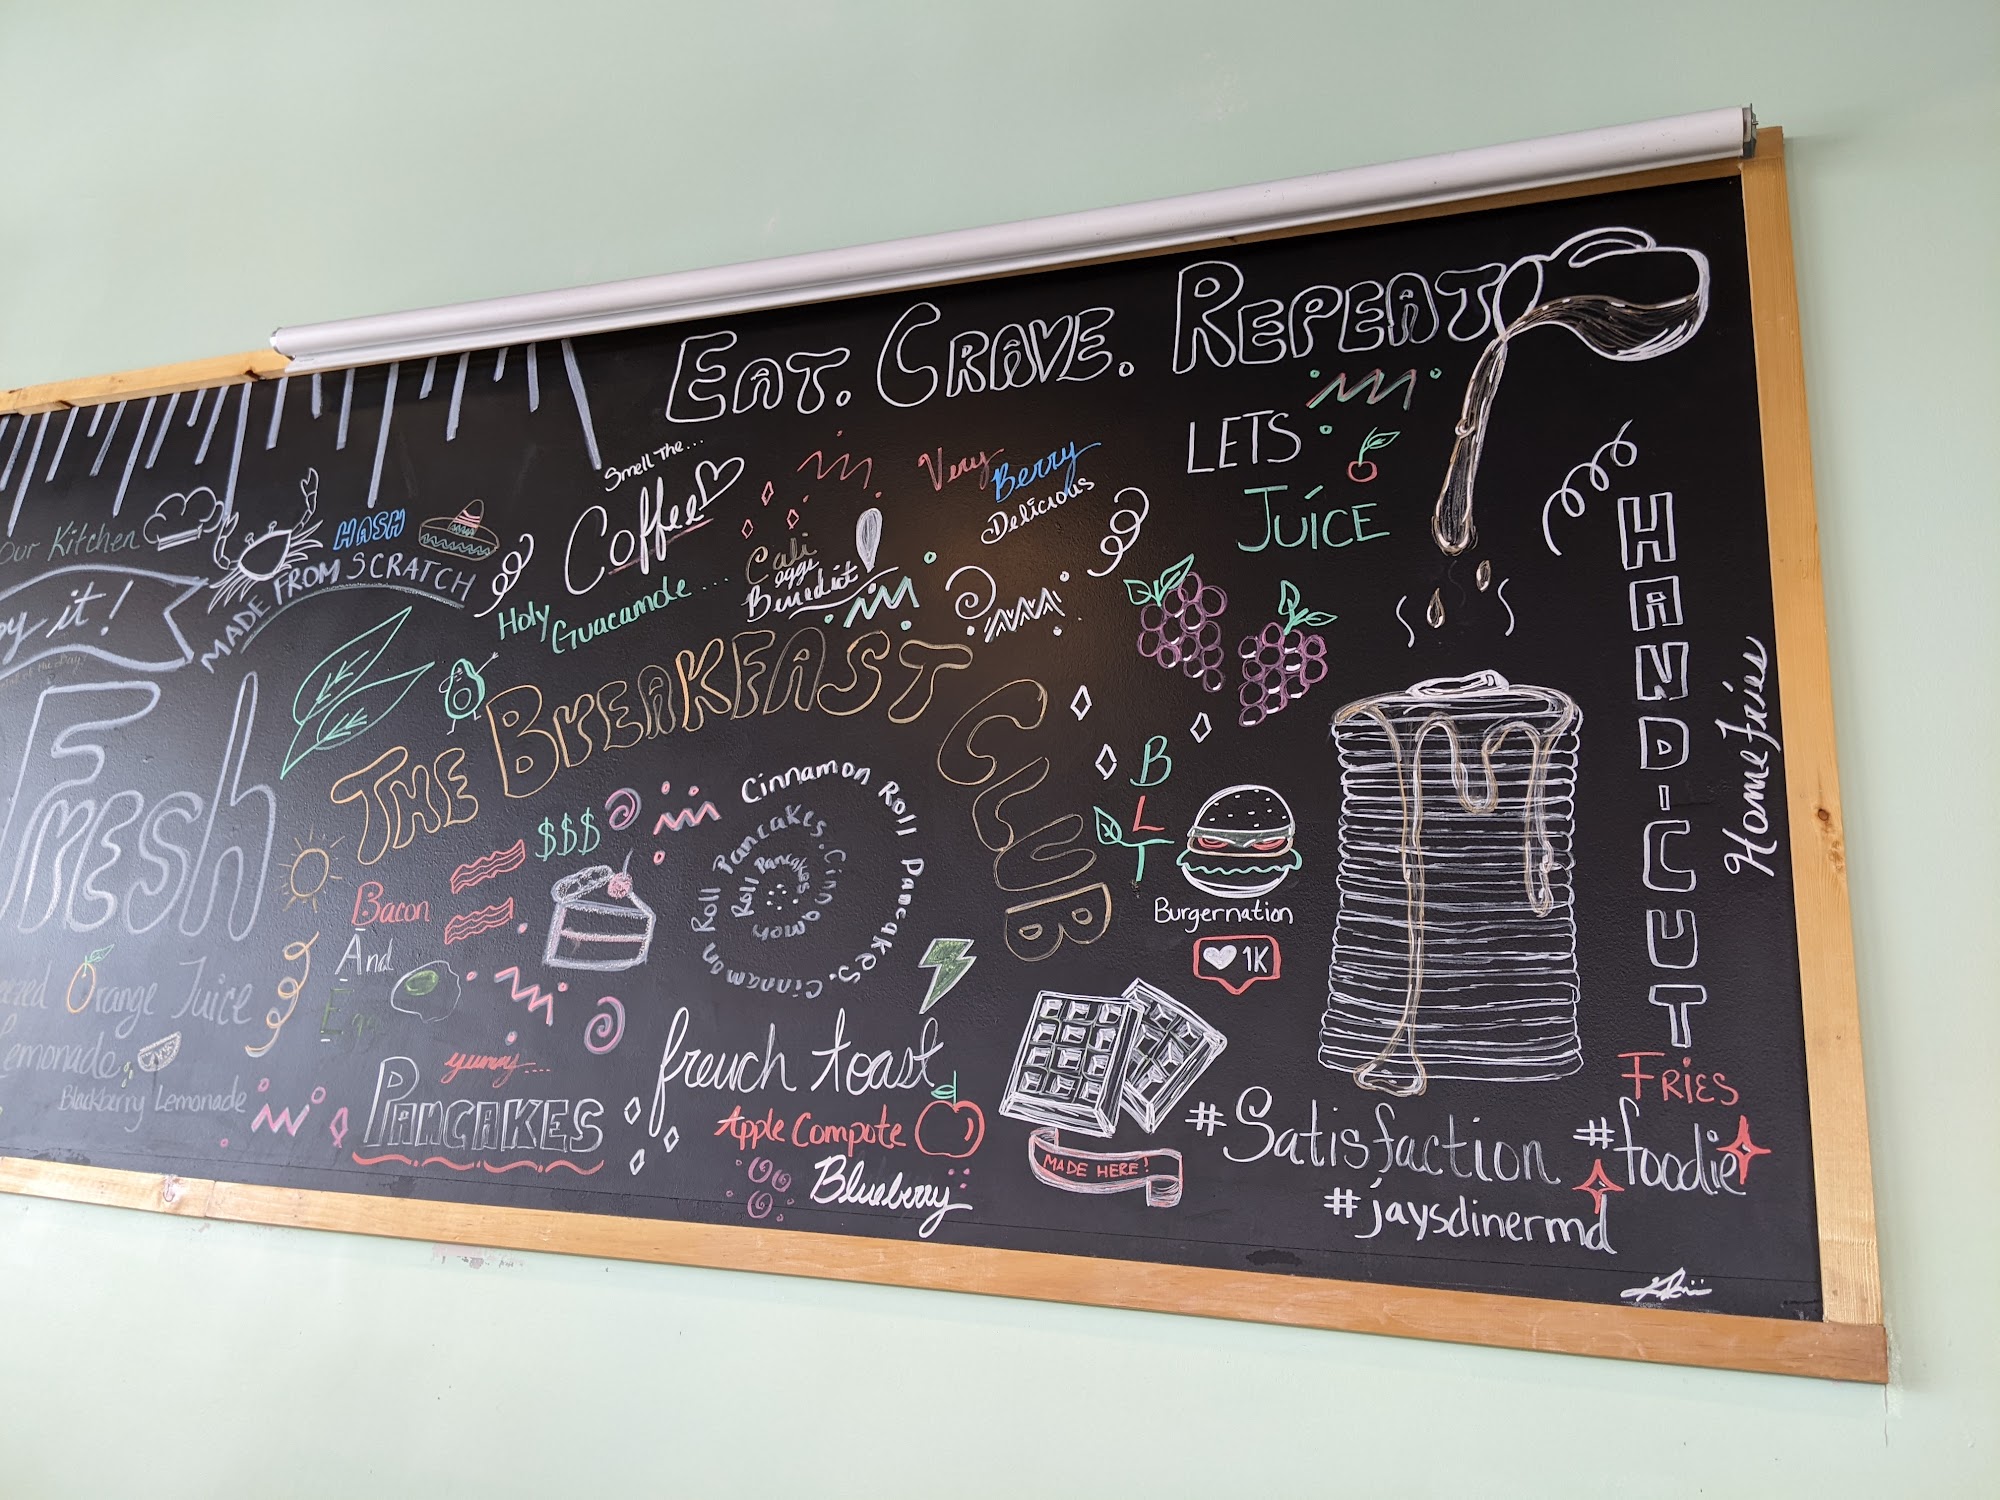 EAT. CRAVE. REPEAT
Our Kitchen
HASH
MADE FROM SCRATCH
it!
FRESh
Orange Juice
Lemonade
Blackberry Lemonade
Smell The...
Coffee
Holy
Guacamole....
Cali
eggs
Benedict
Very
Berry
Delicious
LETS
JUICE
THE BREAKFAST CLUB
$$$
Bacon
And
Egg
Cinnamon Roll Pancakes. Cinnamon Roll Pancakes. Cinnamon Roll Pancakes
yummy....
PANCAKES
french toast
Apple Compote
Blueberry
BLT
Burgernation
1K
MADE HERE!
HAND-CUT
FRIES
Home Fries
#Satisfaction
#foodie
#jaysdinermd